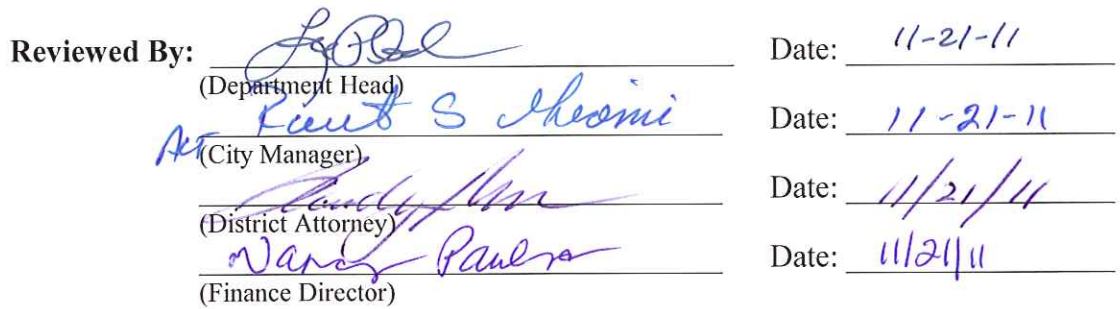 Reviewed By: Date: 11-21-11
(Department Head)
S Date: 11-21-11
(City Manager)
Date: 11/21/11
(District Attorney)
Nancy Paulson Date: 11/21/11
(Finance Director)